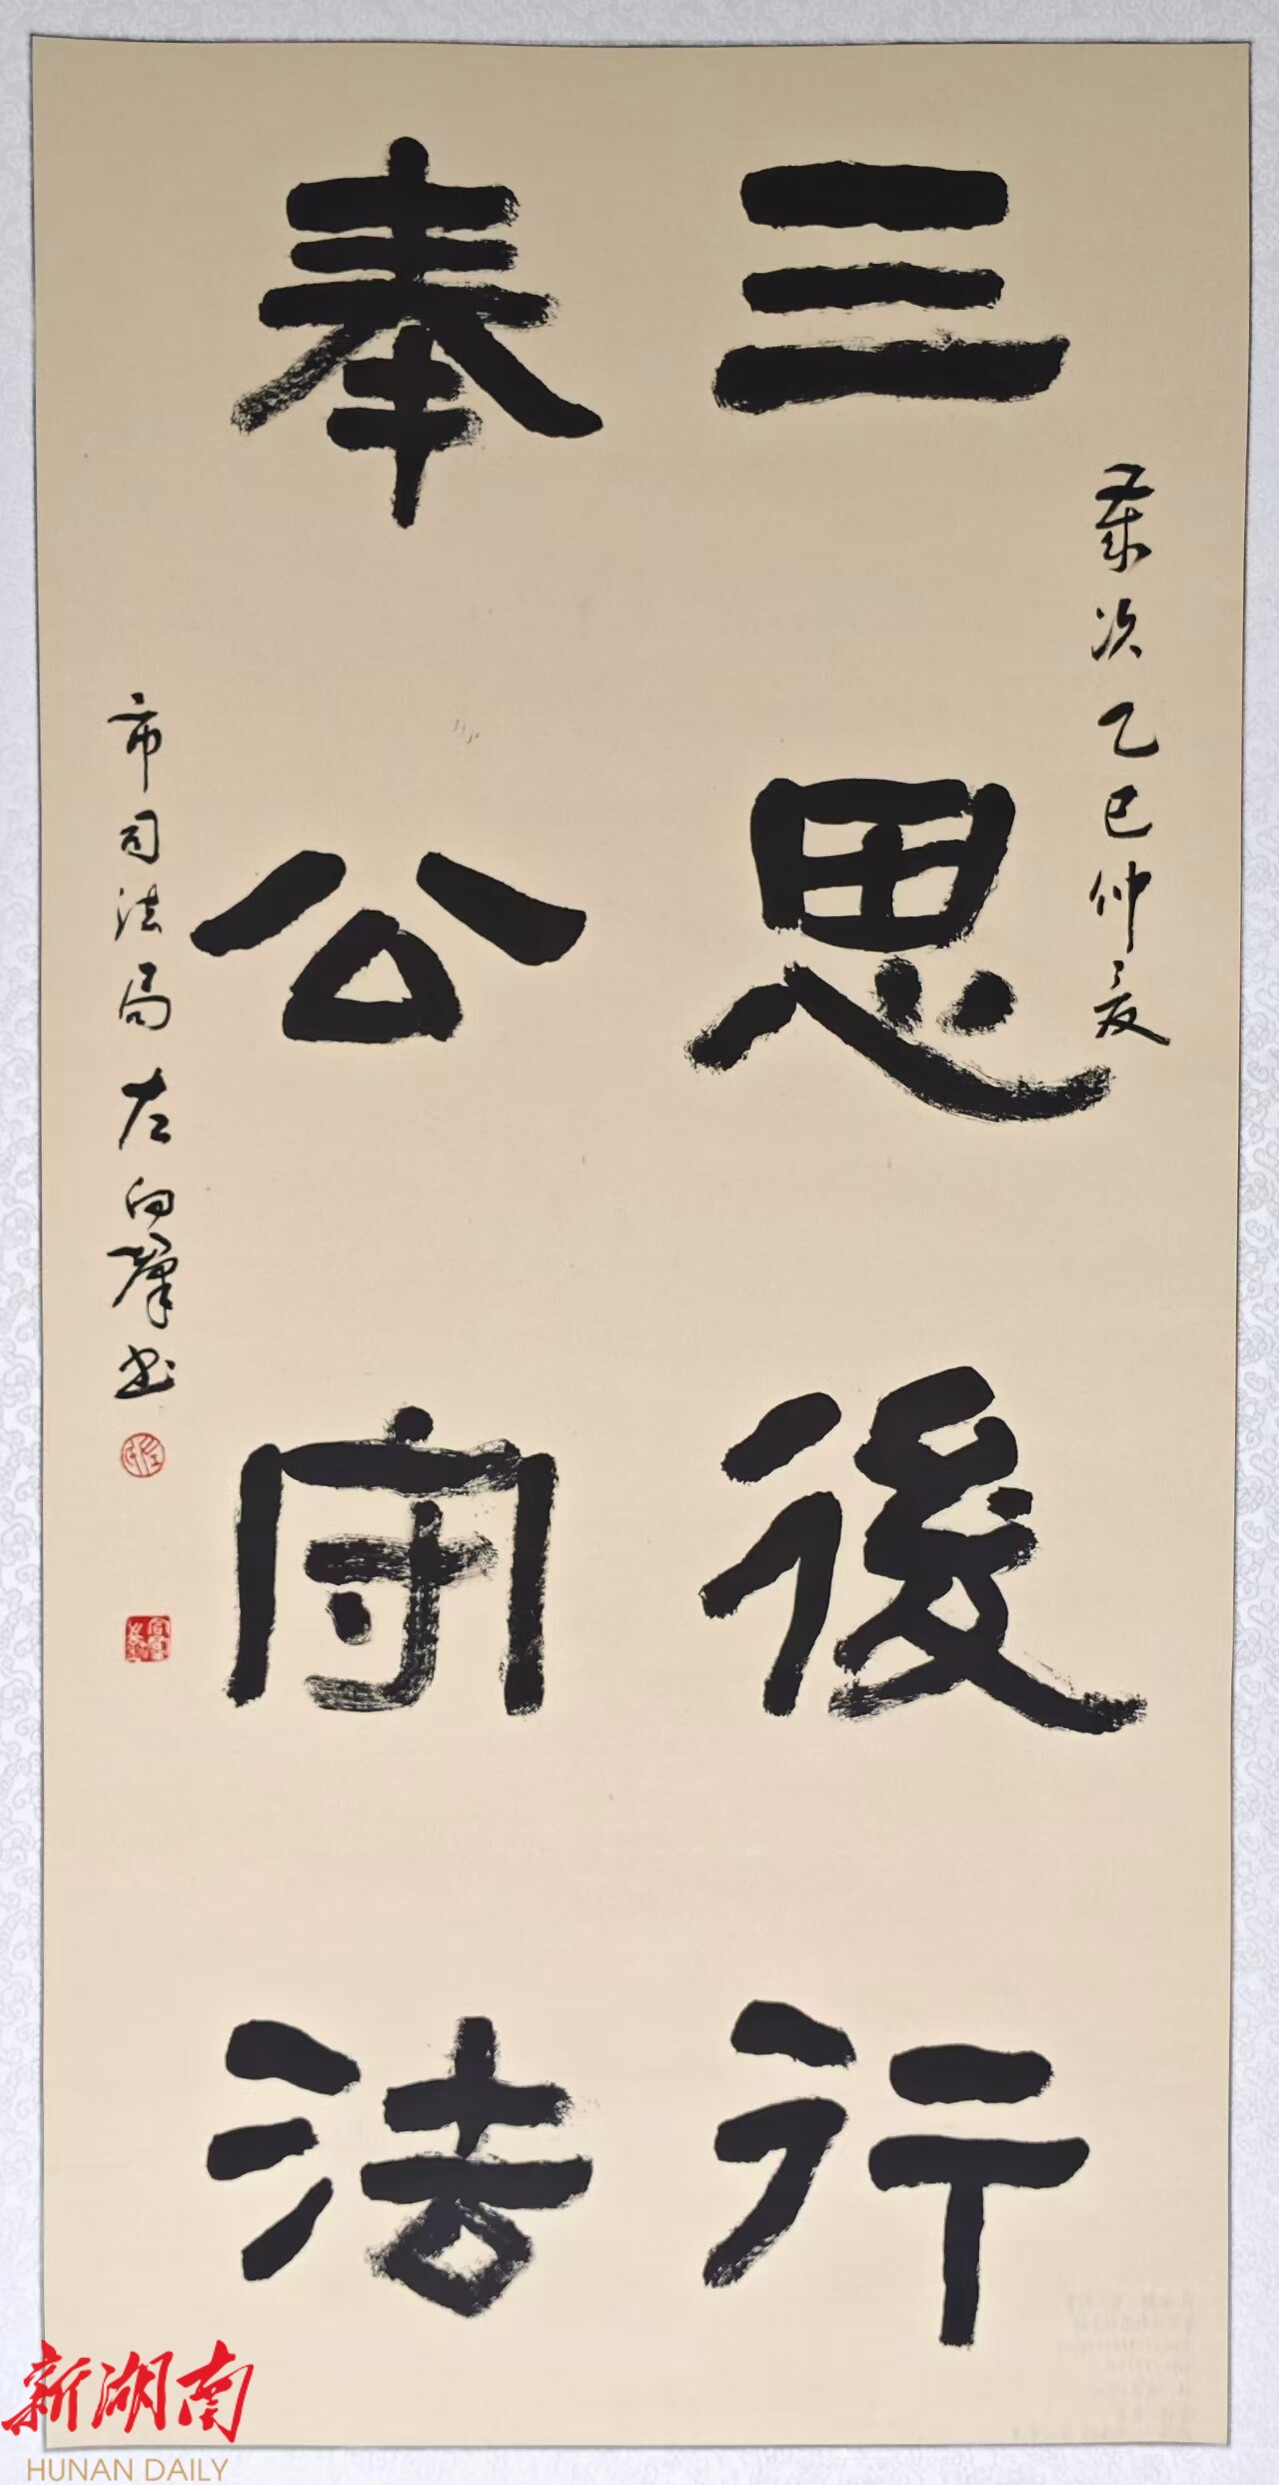 三思後行
奉公守法
歲次乙巳仲夏
市司法局左向肇書
新湖南
HUNAN DAILY